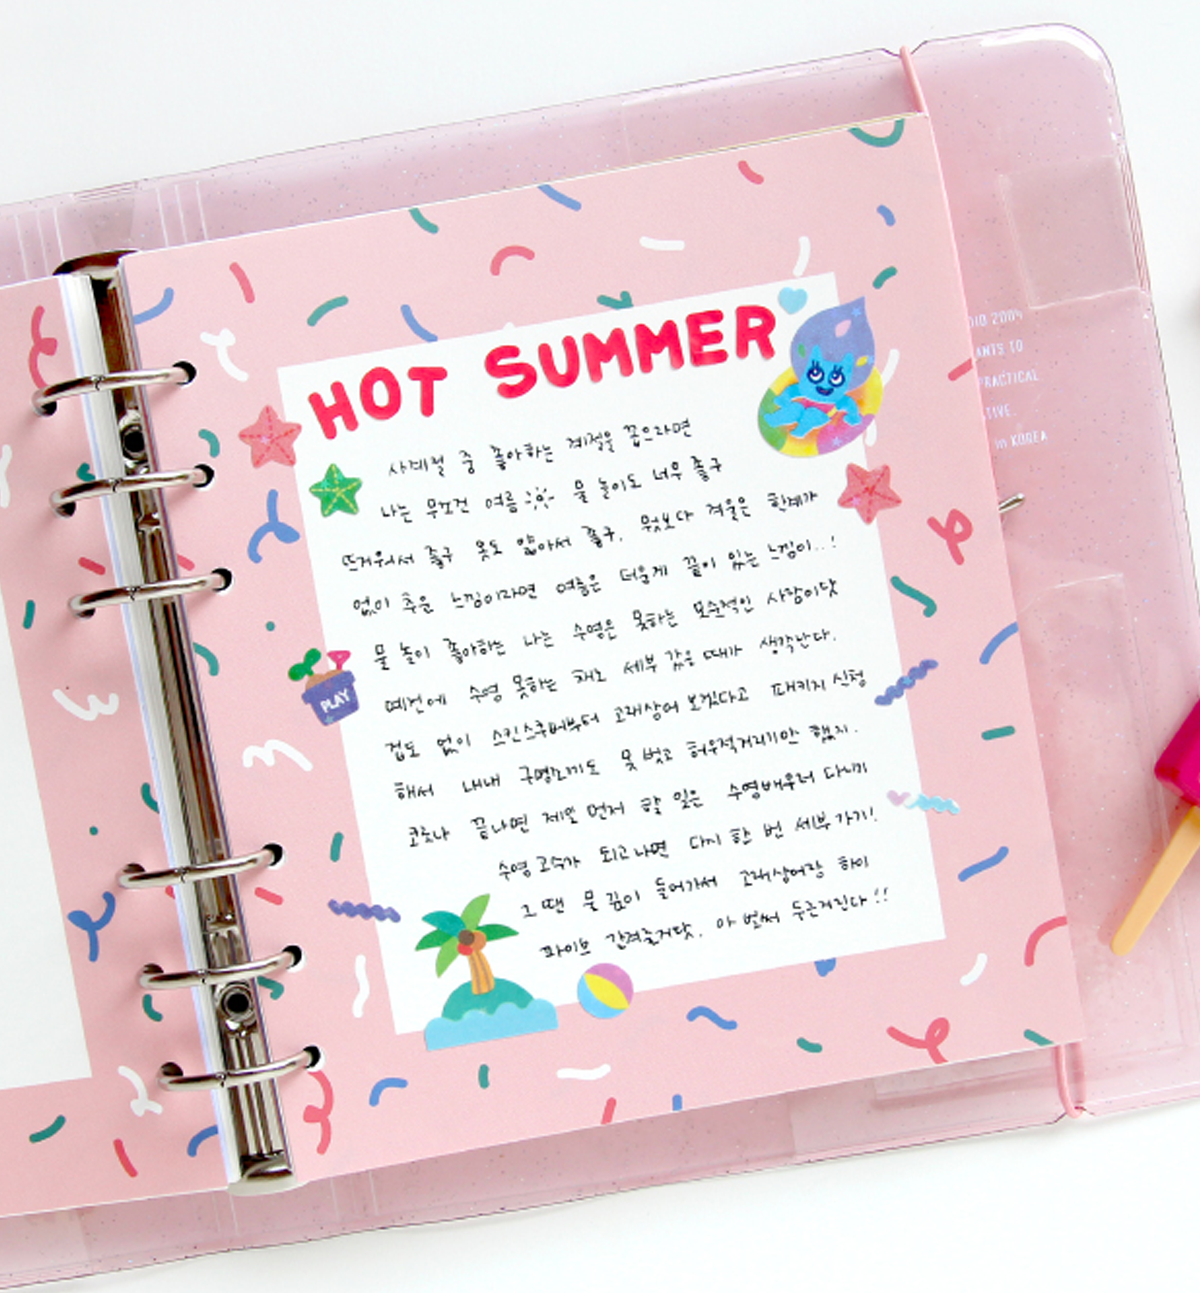 HOT SUMMER
사계절 중 좋아하는 계절을 꼽으라면
나는 무조건 여름 물 놀이도 너무 좋구
뜨거워서 좋구 옷도 얇아서 좋구. 뭣보다 겨울은 한계가
없이 추운 느낌이라면 여름은 더운게 끝이 있는 느낌이..!
물 놀이 좋아하는 나는 수영은 못하는 모순적인 사람이닷
예전에 수영 못하는 채로 세부 갔을 때가 생각난다.
겁도 없이 스킨스쿠버부터 고래상어 보겠다고 패키지 신청
해서 내내 구명조끼도 못 벗고 허우적거리기만 했지.
코로나 끝나면 제일 먼저 할 일은 수영배우러 다니기
수영 고수가 되고나면 다시 한 번 세부 가기!
그 땐 물 깊이 들어가서 고래상어랑 하이
파이브 갈겨줄거닷. 아 벌써 두근거린다!!
PLAY
2004
ANTS TO
PRACTICAL
TIVE.
in KOREA